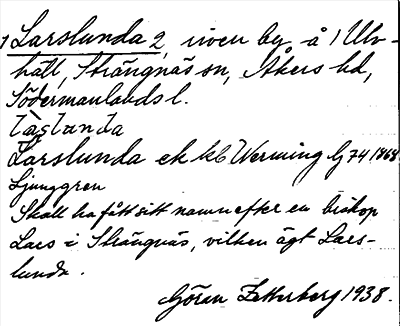 1 Larslunda 2, riven by å 1 Ulv-
häll, Strängnäs sn, Åkers hd,
Södermanlands l.
làslunda
Larslunda ek kl6 Werming Lj 74 1868
Ljunggren
Skall ha fått sitt namn efter en biskop
Lars i Strängnäs, vilken ägt Lars-
lunda.
Göran Zetterberg 1938.